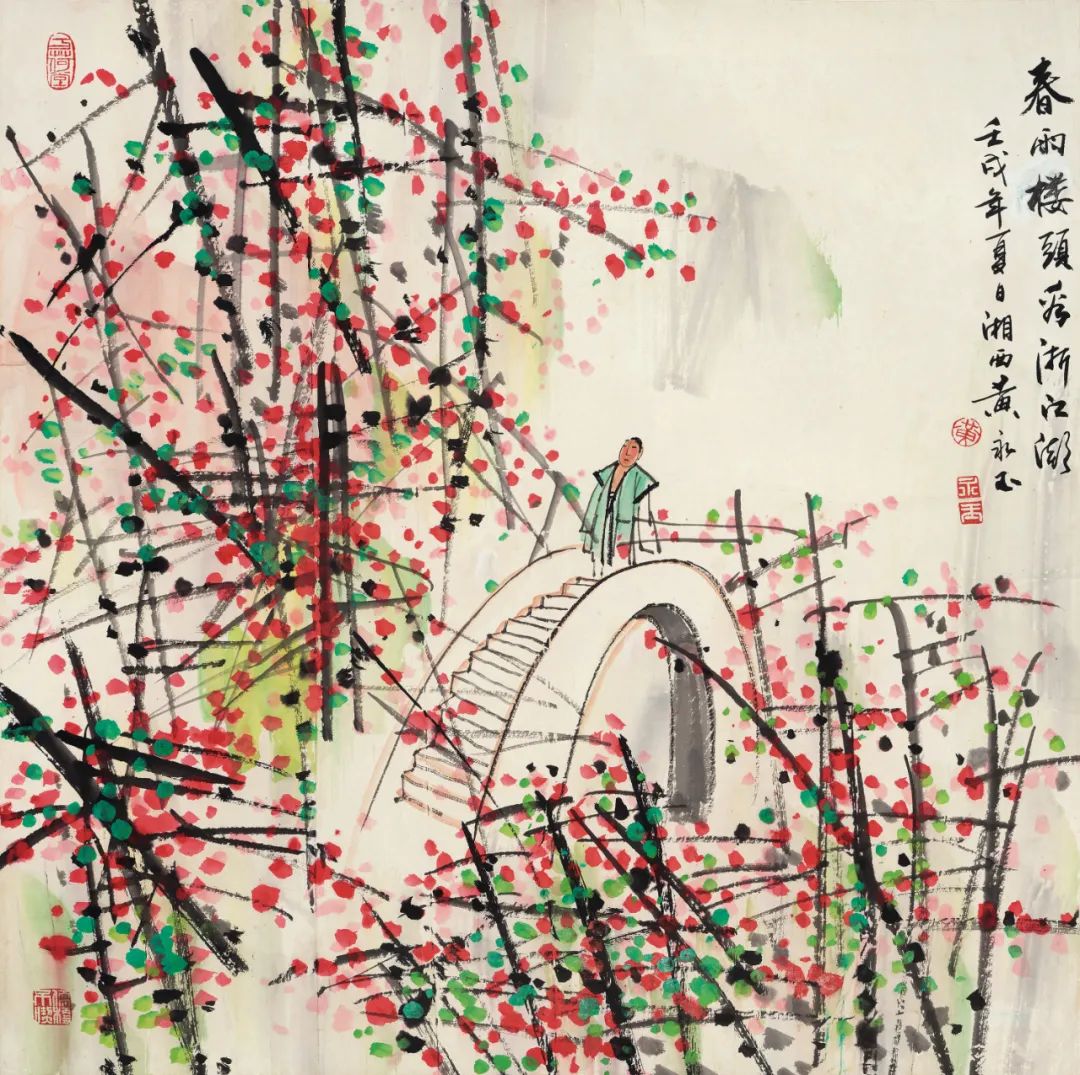 春雨楼頭看浙江潮
壬戌年夏日湘西黄永玉
黄
永玉